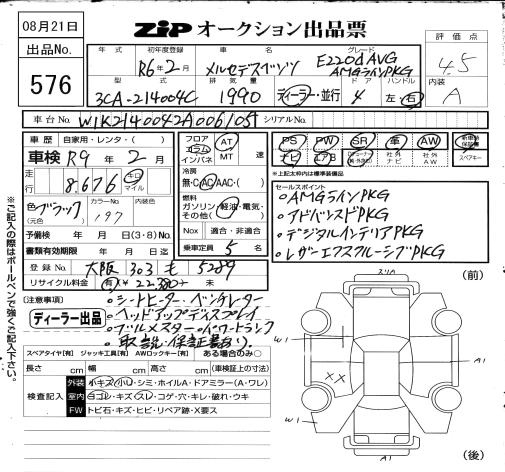 08月21日
ZIP オークション出品票
出品No.
576
年式 初年度登録 車名 グレード 評価点
R6年2月 メルセデスベンツ E220d AVG AMGラインPKG 4.5
型式 排気量 ドア ハンドル 内装
3CA-214004C 1990 ディーラー・並行 4 左・右 A
車台No. W1K2140042A006105 シリアルNo.
車歴 自家用・レンタ・( )
車検 R9年2月
走行 8,676 キロ マイル
色 ブラック (元色) カラーNo. 197 内装色
予備検 年 月 日(3・8)No.
書類有効期限 年 月 日迄
登録No. 大阪 303 も 5289
リサイクル料金 有 ¥22,380 未
フロア コラム インパネ AT MT 速
冷房 無・C・AC・AAC・( )
燃料 ガソリン・軽油・電気・その他( )
Nox 適合・非適合
乗車定員 5 名
PS PW SR 革 AW 新車時保証書
ナビ エアB 社外ナビ 社外AW スペアキー
※上記太枠内は標準装備品
セールスポイント
・AMGラインPKG
・アドバンスドPKG
・デジタルインテリアPKG
・レザーエクスクルーシブPKG
[注意事項]
・シートヒーター・ベンチレーター
・ヘッドアップディスプレイ
・ブルメスター・パワートランク
・取説・保証書あり。
ディーラー出品
スペアタイヤ[有] ジャッキ工具[有] AWロックキー[有] ある場合のみ○
長さ cm 幅 cm 高さ cm (車検証上の寸法)
検査記入
外装 小キズ・小凹・シミ・ホイルA・ドアミラー(A・ワレ)
室内 ヨゴレ・キズ・スレ・コゲ・穴・キレ・破れ・ウキ
FW トビ石・キズ・ヒビ・リペア跡・X要ス
※ご記入の際はボールペンで強くご記入下さい。
(前)
スリA
W1
A1
A1
XX
W1
(後)